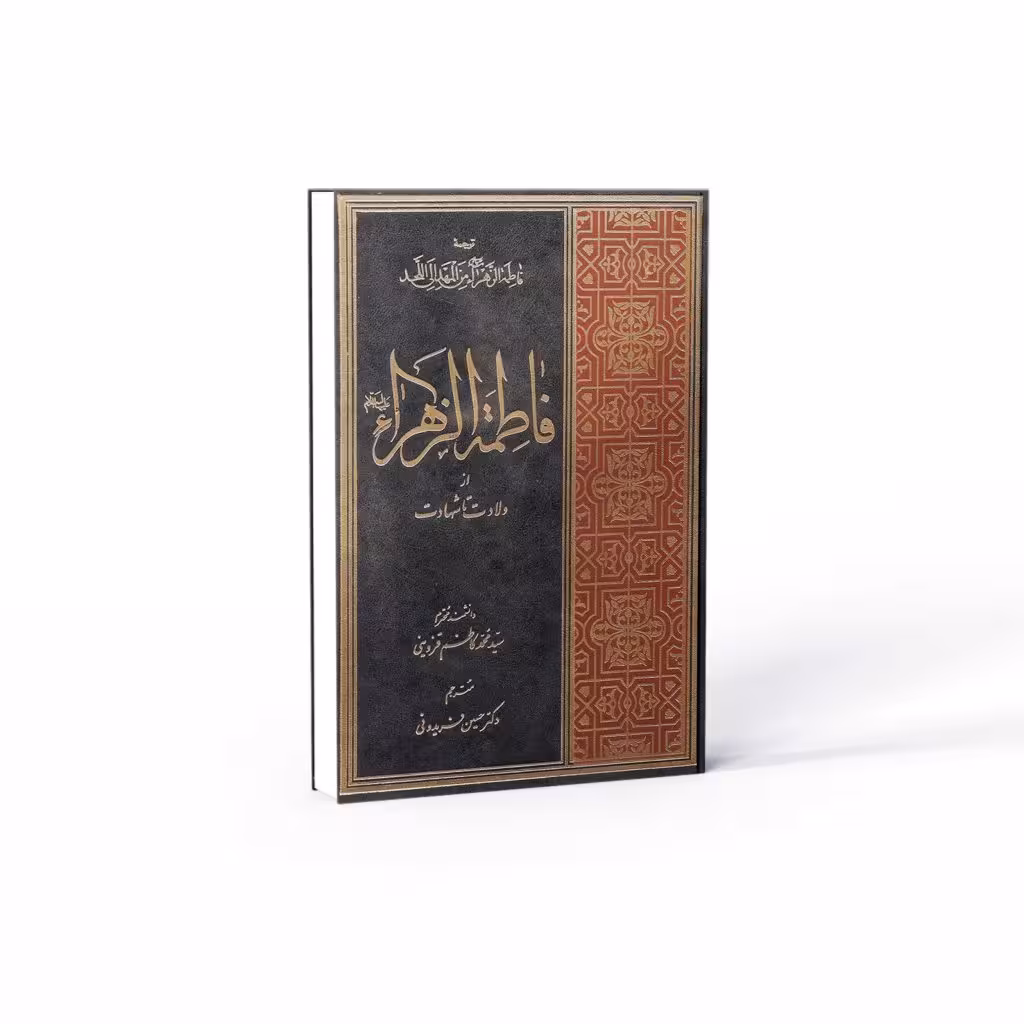 ترجمة
فاطمة الزهراء من المهد إلى اللحد
فاطمة الزهراء علیهاالسلام
از
ولادت تا شهادت
دانشمند محترم
سید محمد کاظم قزوینی
مترجم
دکتر حسین فریدونی